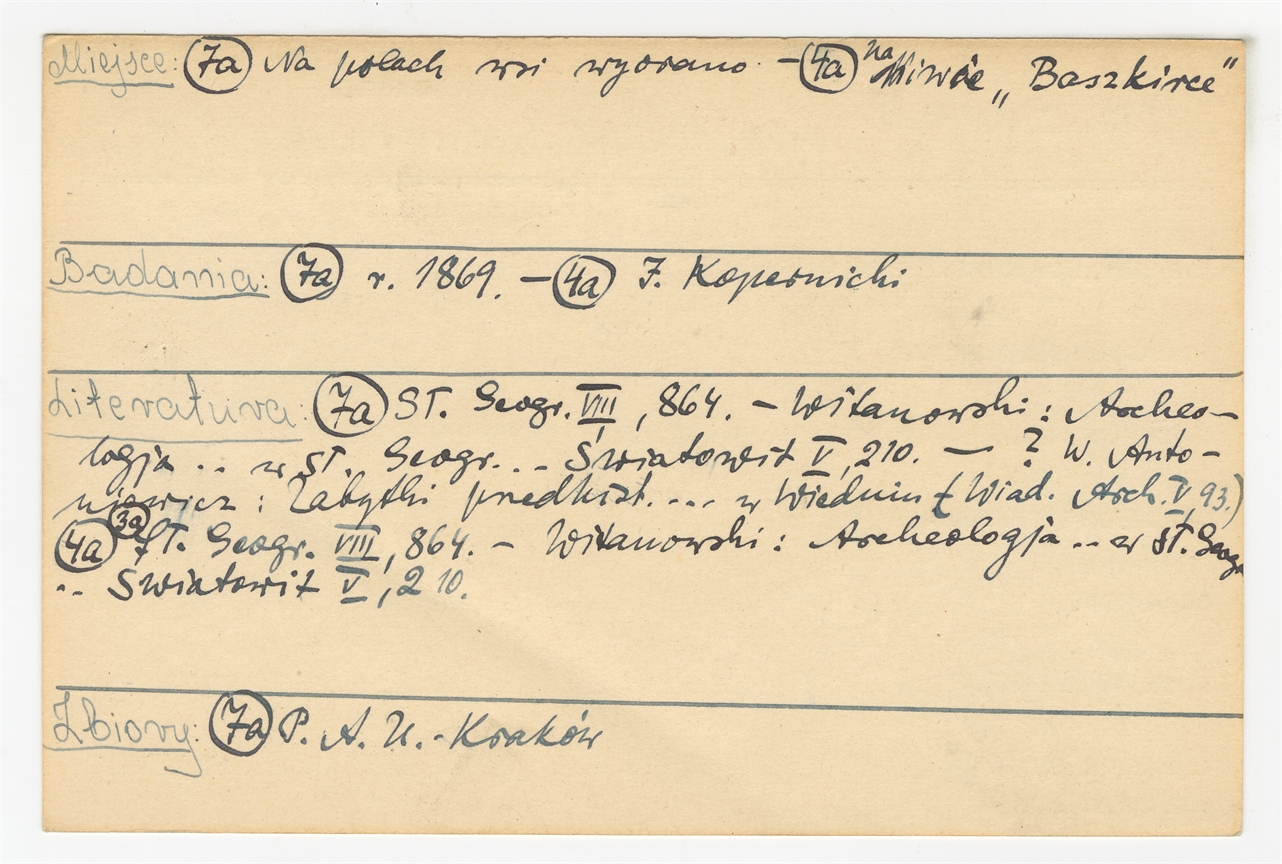 Miejsce: 7a Na polach wsi wyorano. - 4a na Niwie „Baszkirce"
Badania: 7a r. 1869. - 4a I. Kopernicki
Literatura: 7a SŁ. Geogr. VIII, 864. - Witanowski: Archeo-
logja .. w SŁ. Geogr. .. Światowit V, 210. - ? W. Anto-
niewicz: Zabytki przedhist. ... w Wiedniu (Wiad. Arch. V, 93.)
4a 3a SŁ. Geogr. VIII, 864. - Witanowski: Archeologja .. w SŁ. Geogr
.. Światowit V, 210.
Zbiory: 7a P. A. U. - Kraków